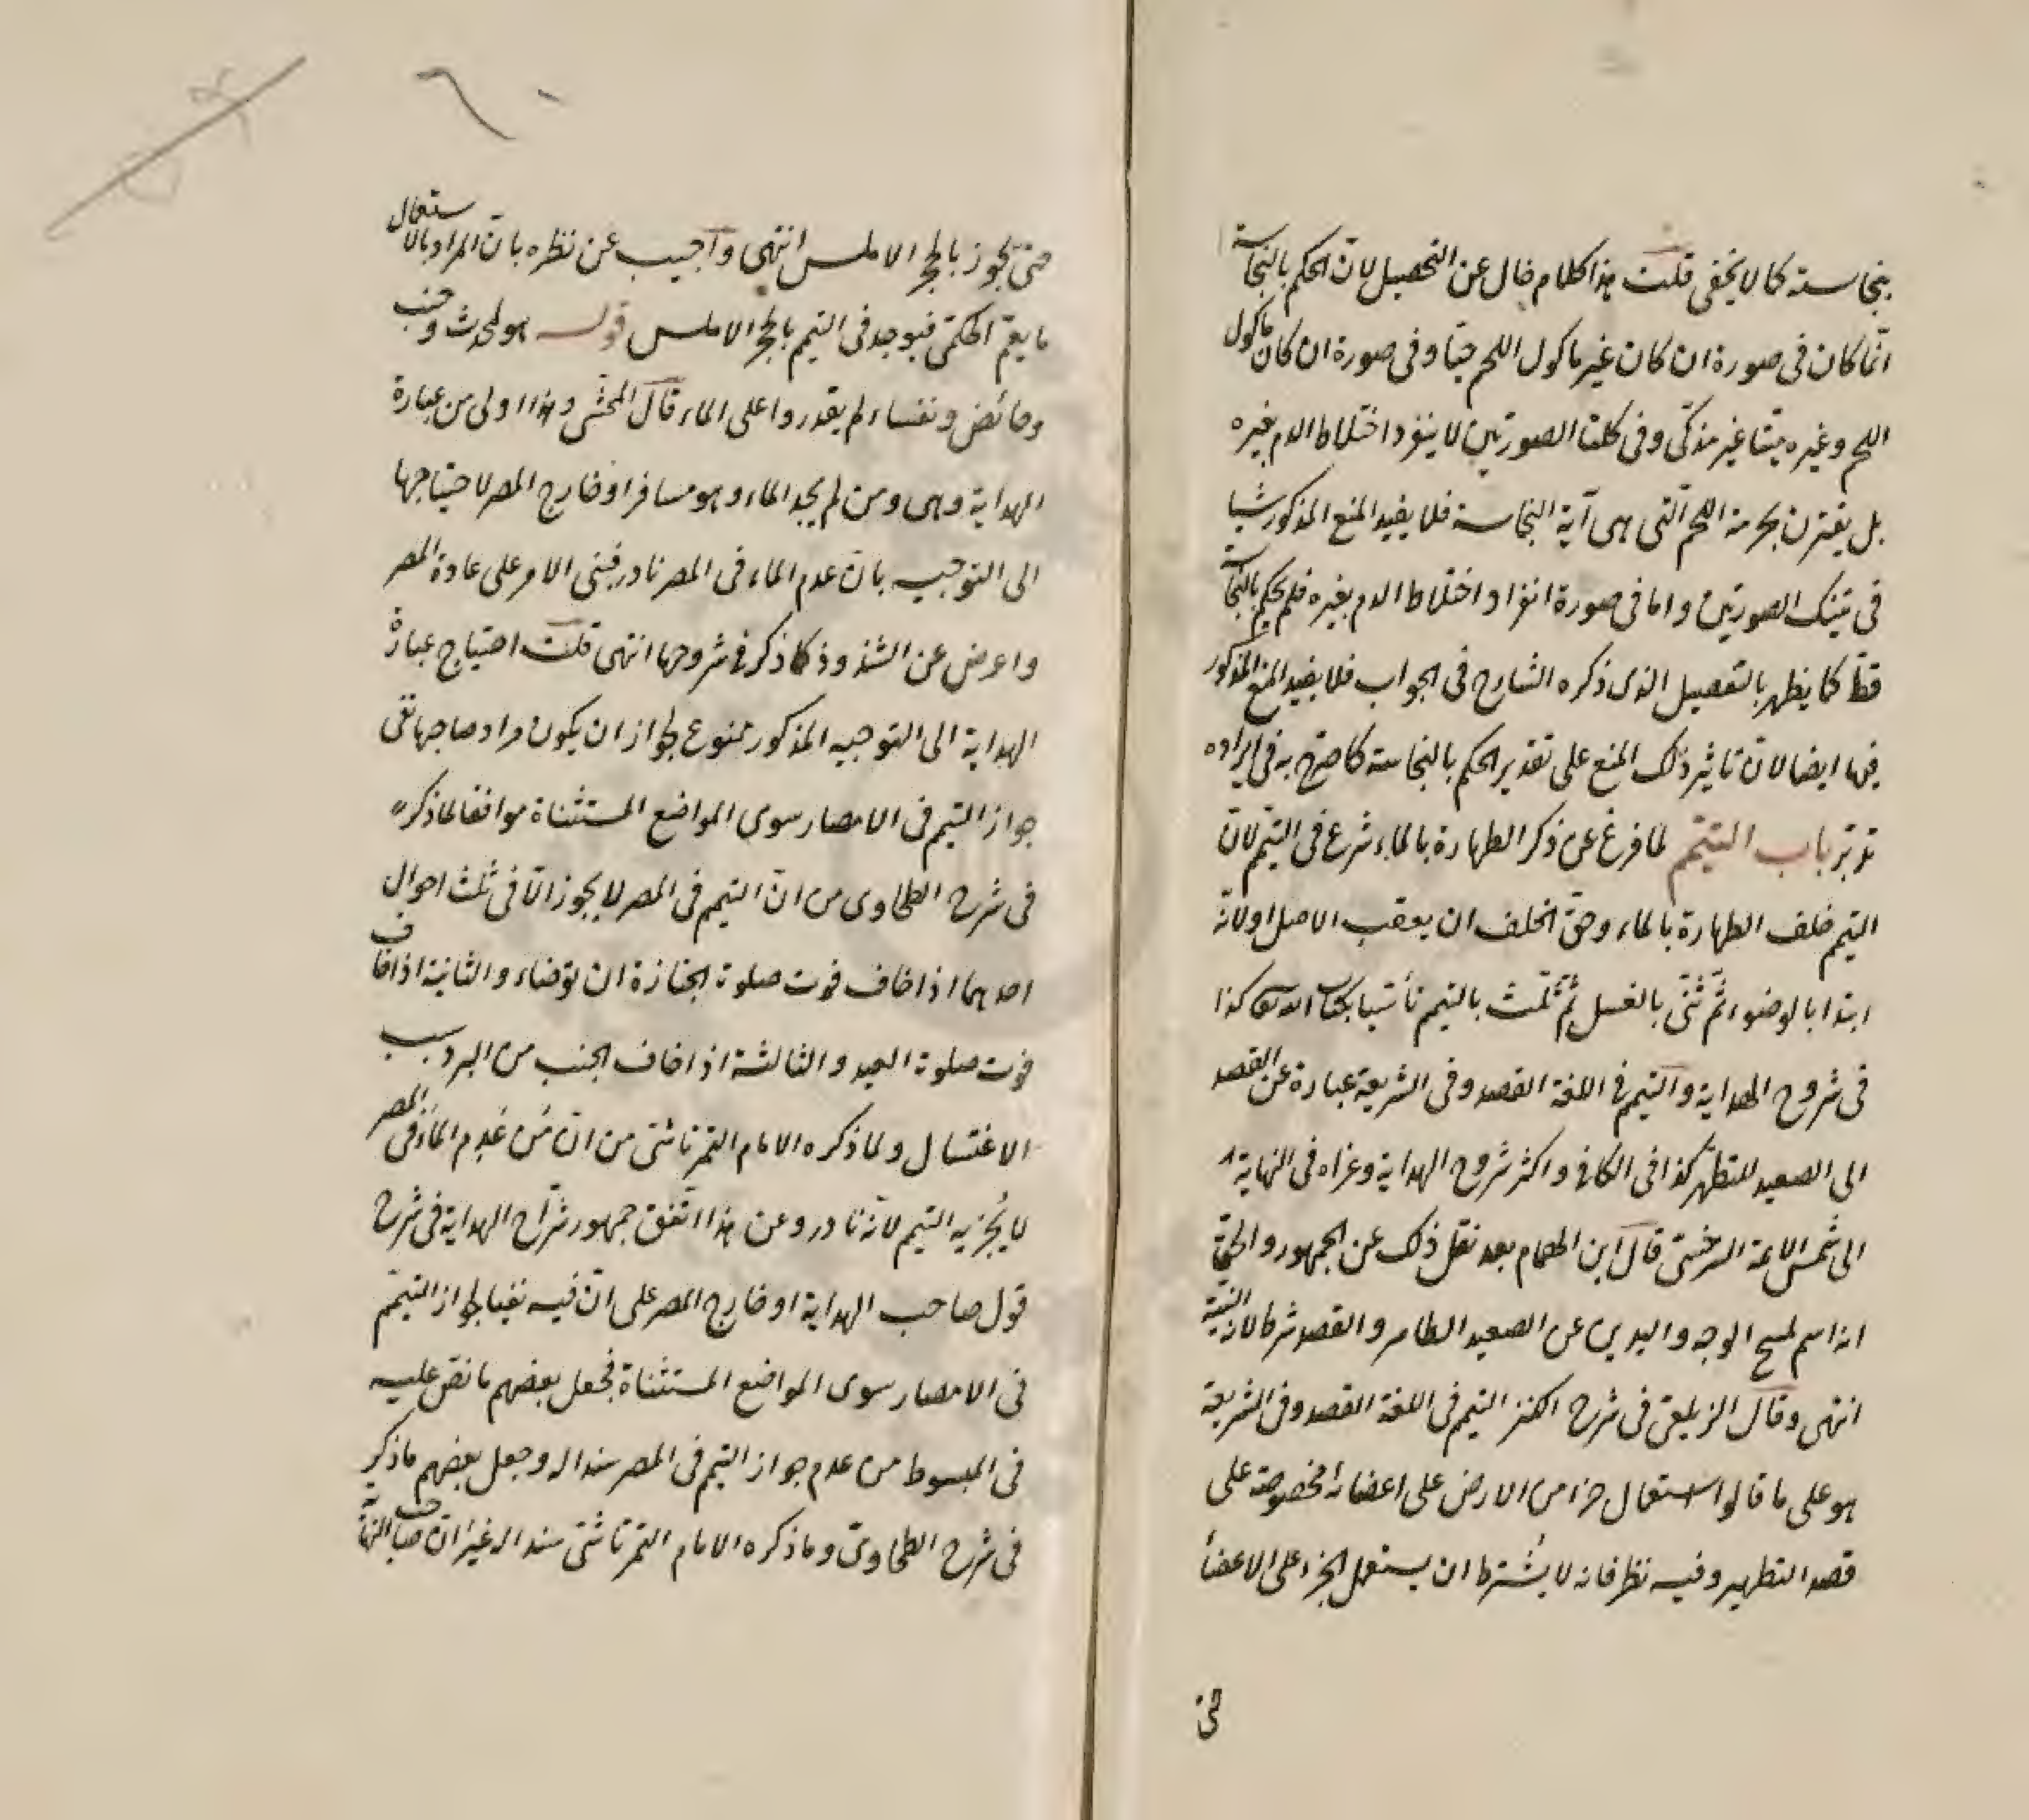 بنجاسته كما لا يخفى قلت هذا كلام خال عن التحصيل لان الحكم بالنجاسة
انما كان فى صورة ان كان غير ماكول اللحم حيا وفى صورة ان كان ماكول
اللحم وغيره ميتا غير مذكى وفى كلتا الصورتين لا ينفرد اختلاط الدم بغيره
بل يقترن بحرمة اللحم التى هى آية النجاسة فلا يفيد المنع المذكور شيأ
فى تينك الصورتين واما فى صورة انفراد اختلاط الدم بغيره فلم يحكم بالنجاسة
قط كما يظهر بالتفصيل الذى ذكره الشارح فى الجواب فلا يفيد المنع المذكور
فيها ايضا لان تاثير ذلك المنع على تقدير الحكم بالنجاسة كما صرح به فى ايراده
تدبر باب التيمم لما فرغ عن ذكر الطهارة بالماء شرع فى التيمم لان
التيمم خلف الطهارة بالماء وحق الخلف ان يعقب الاصل اولانه
ابتدا بالوضوء ثم ثنى بالغسل ثم ثلث بالتيمم تأسيا بكتاب الله تعالى كذا
فى شروح الهداية والتيمم فى اللغة القصد وفى الشريعة عبارة عن القصد
الى الصعيد للتطهر كذا فى الكافى واكثر شروح الهداية وعزاه فى النهاية
الى شمس الائمة السرخسى قال ابن الهمام بعد نقل ذلك عن الجمهور والحق
انه اسم لمسح الوجه واليدين عن الصعيد الطاهر والقصد شرط لانه النية
انتهى وقال الزيلعى فى شرح الكنز التيمم فى اللغة القصد وفى الشريعة
هو على ما قالوا استعمال جزء من الارض على اعضاء مخصوصة على
قصد التطهير وفيه نظر فانه لا يشترط ان يستعمل الجزء على الاعضأ
حتى يجوز بالحجر الاملس انتهى واجيب عن نظره بان المراد بالاستعمال
ما يعم الحكمى فيوجد فى التيمم بالحجر الاملس قوله هو لمحدث وجنب
وحائض ونفساء لم يقدروا على الماء قال المحشى وهذا اولى من عبارة
الهداية وهى ومن لم يجد الماء وهو مسافر او خارج المصر لاحتياجها
الى التوجيه بان عدم الماء فى المصر نادر فبنى الامر على عادة المصر
واعرض عن الشذوذ كما ذكر فى شروحها انتهى قلت احتياج عبارة
الهداية الى التوجيه المذكور ممنوع لجواز ان يكون مراد صاحبها نفى
جواز التيمم فى الامصار سوى المواضع المستثناة موافقا لما ذكر
فى شرح الطحاوى من ان التيمم فى المصر لا يجوز الا فى ثلث احوال
احديهما اذا خاف فوت صلوة الجنازة ان توضاء والثانية اذا خاف
فوت صلوة العيد والثالثة اذا خاف الجنب من البرد بسبب
الاغتسال ولما ذكره الامام التمرتاشى من ان من عدم الماء فى المصر
لا يجزيه التيمم لانه نادر وعن هذا اتفق جمهور شراح الهداية فى شرح
قول صاحب الهداية او خارج المصر على ان فيه نفيا لجواز التيمم
فى الامصار سوى المواضع المستثناة فجعل بعضهم ما نص عليه
فى المبسوط من عدم جواز التيمم فى المصر سندا له وجعل بعضهم ما ذكر
فى شرح الطحاوى وما ذكره الامام التمرتاشى سندا له غير ان صاحب النهاية